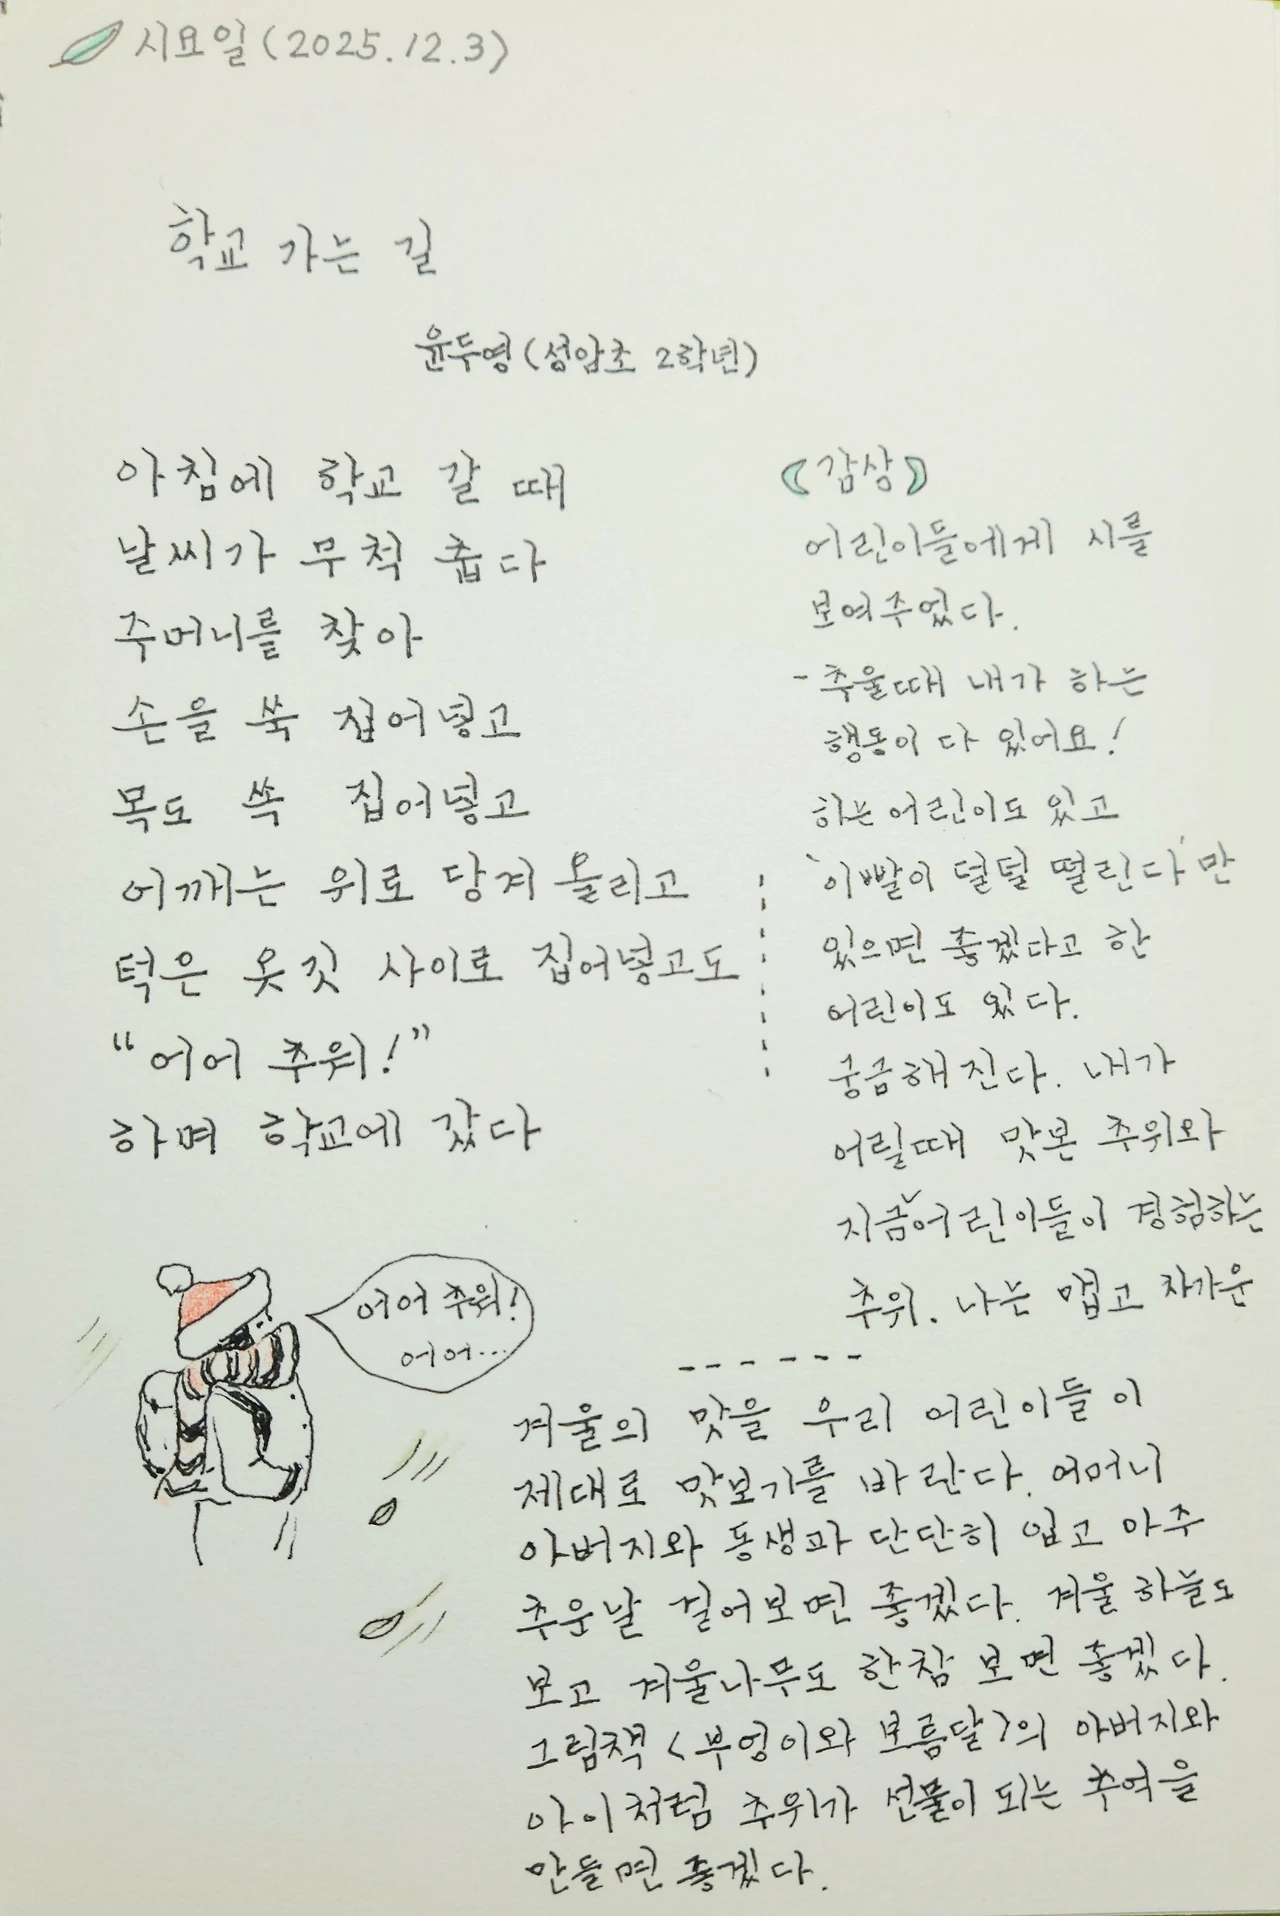 시요일(2025.12.3)
학교 가는 길
윤두영(성암초 2학년)
아침에 학교 갈 때
날씨가 무척 춥다
주머니를 찾아
손을 쑥 집어넣고
목도 쏙 집어넣고
어깨는 위로 당겨 올리고
턱은 옷깃 사이로 집어넣고도
"어어 추워!"
하며 학교에 갔다
어어 추워!
어어...
《감상》
어린이들에게 시를
보여주었다.
- 추울때 내가 하는
행동이 다 있어요!
하는 어린이도 있고
'이빨이 덜덜 떨린다'만
있으면 좋겠다고 한
어린이도 있다.
궁금해진다. 내가
어릴때 맛본 추위와
지금˅어린이들이 경험하는
추위. 나는 맵고 차가운
겨울의 맛을 우리 어린이들이
제대로 맛보기를 바란다. 어머니
아버지와 동생과 단단히 입고 아주
추운날 걸어보면 좋겠다. 겨울 하늘도
보고 겨울나무도 한참 보면 좋겠다.
그림책 <부엉이와 보름달>의 아버지와
아이처럼 추위가 선물이 되는 추억을
만들면 좋겠다.